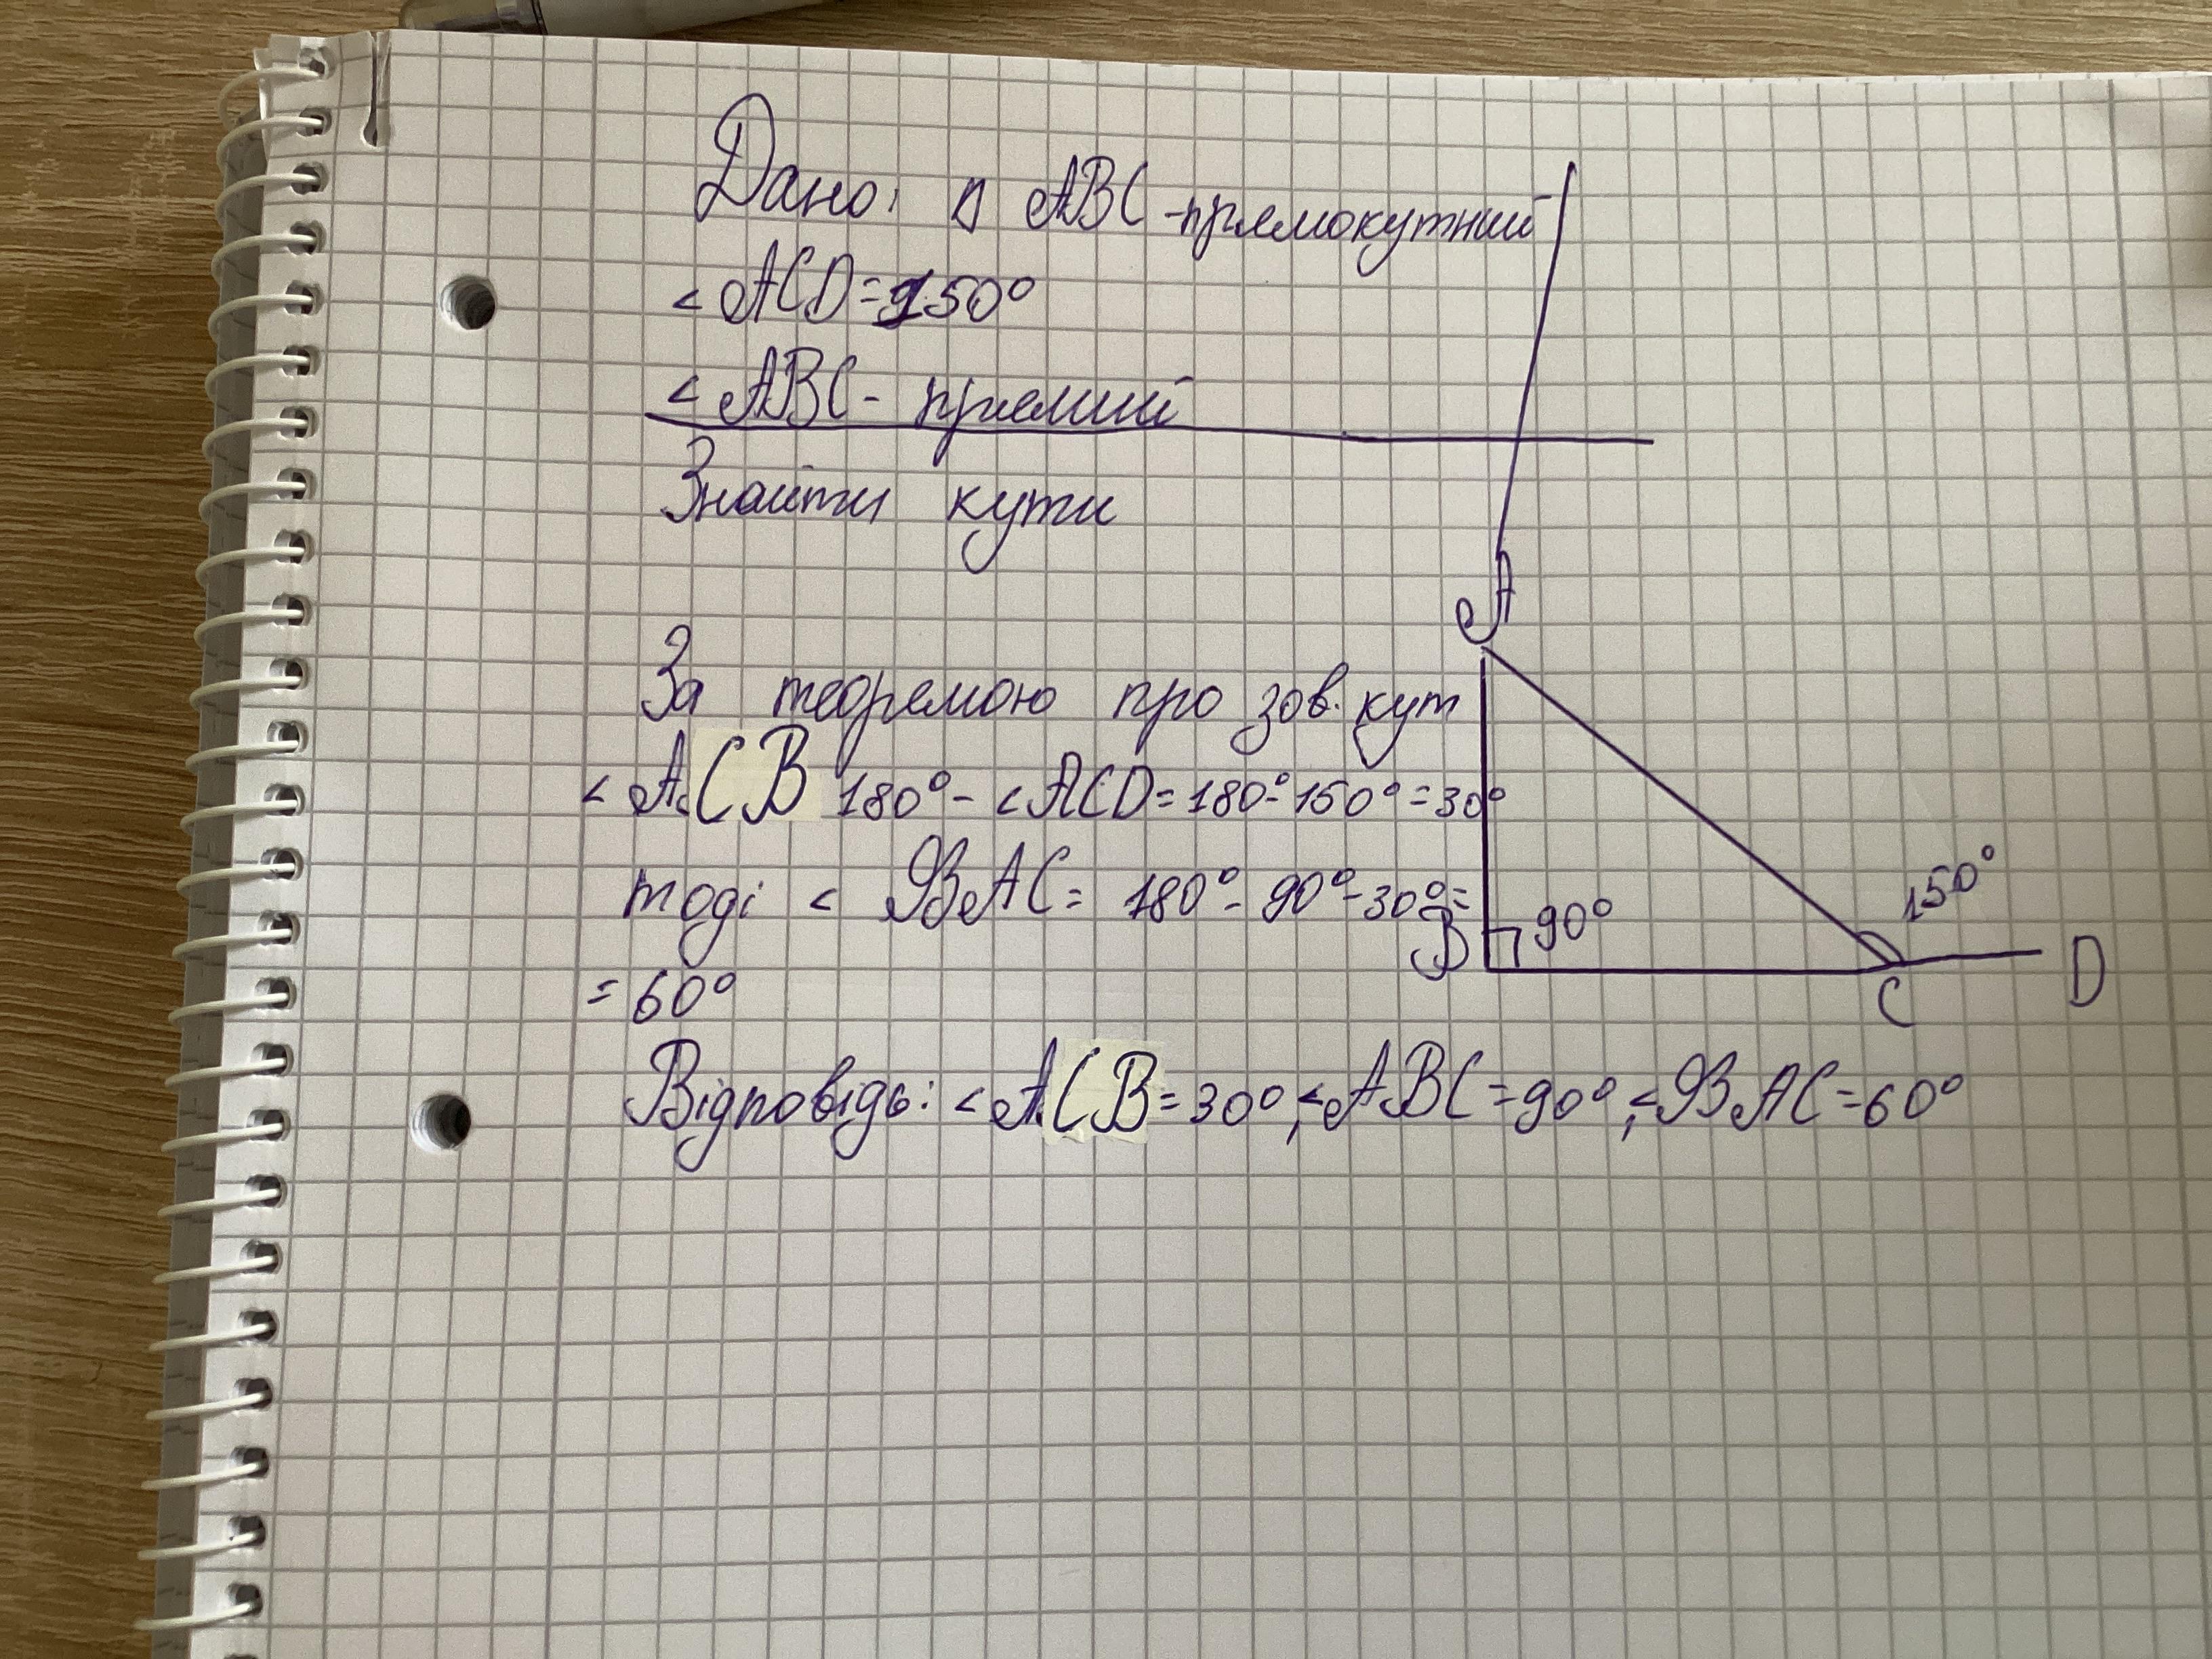 Дано: △ ABC - прямокутний
< ACD = 150°
< ABC - прямий
Знайти кути
За теоремою про зов. кут
< ACB 180° - < ACD = 180° - 150° = 30°
тоді < BAC = 180° - 90° - 30° =
= 60°
Відповідь: < ACB = 30°, < ABC = 90°, < BAC = 60°
A
B
90°
150°
C
D